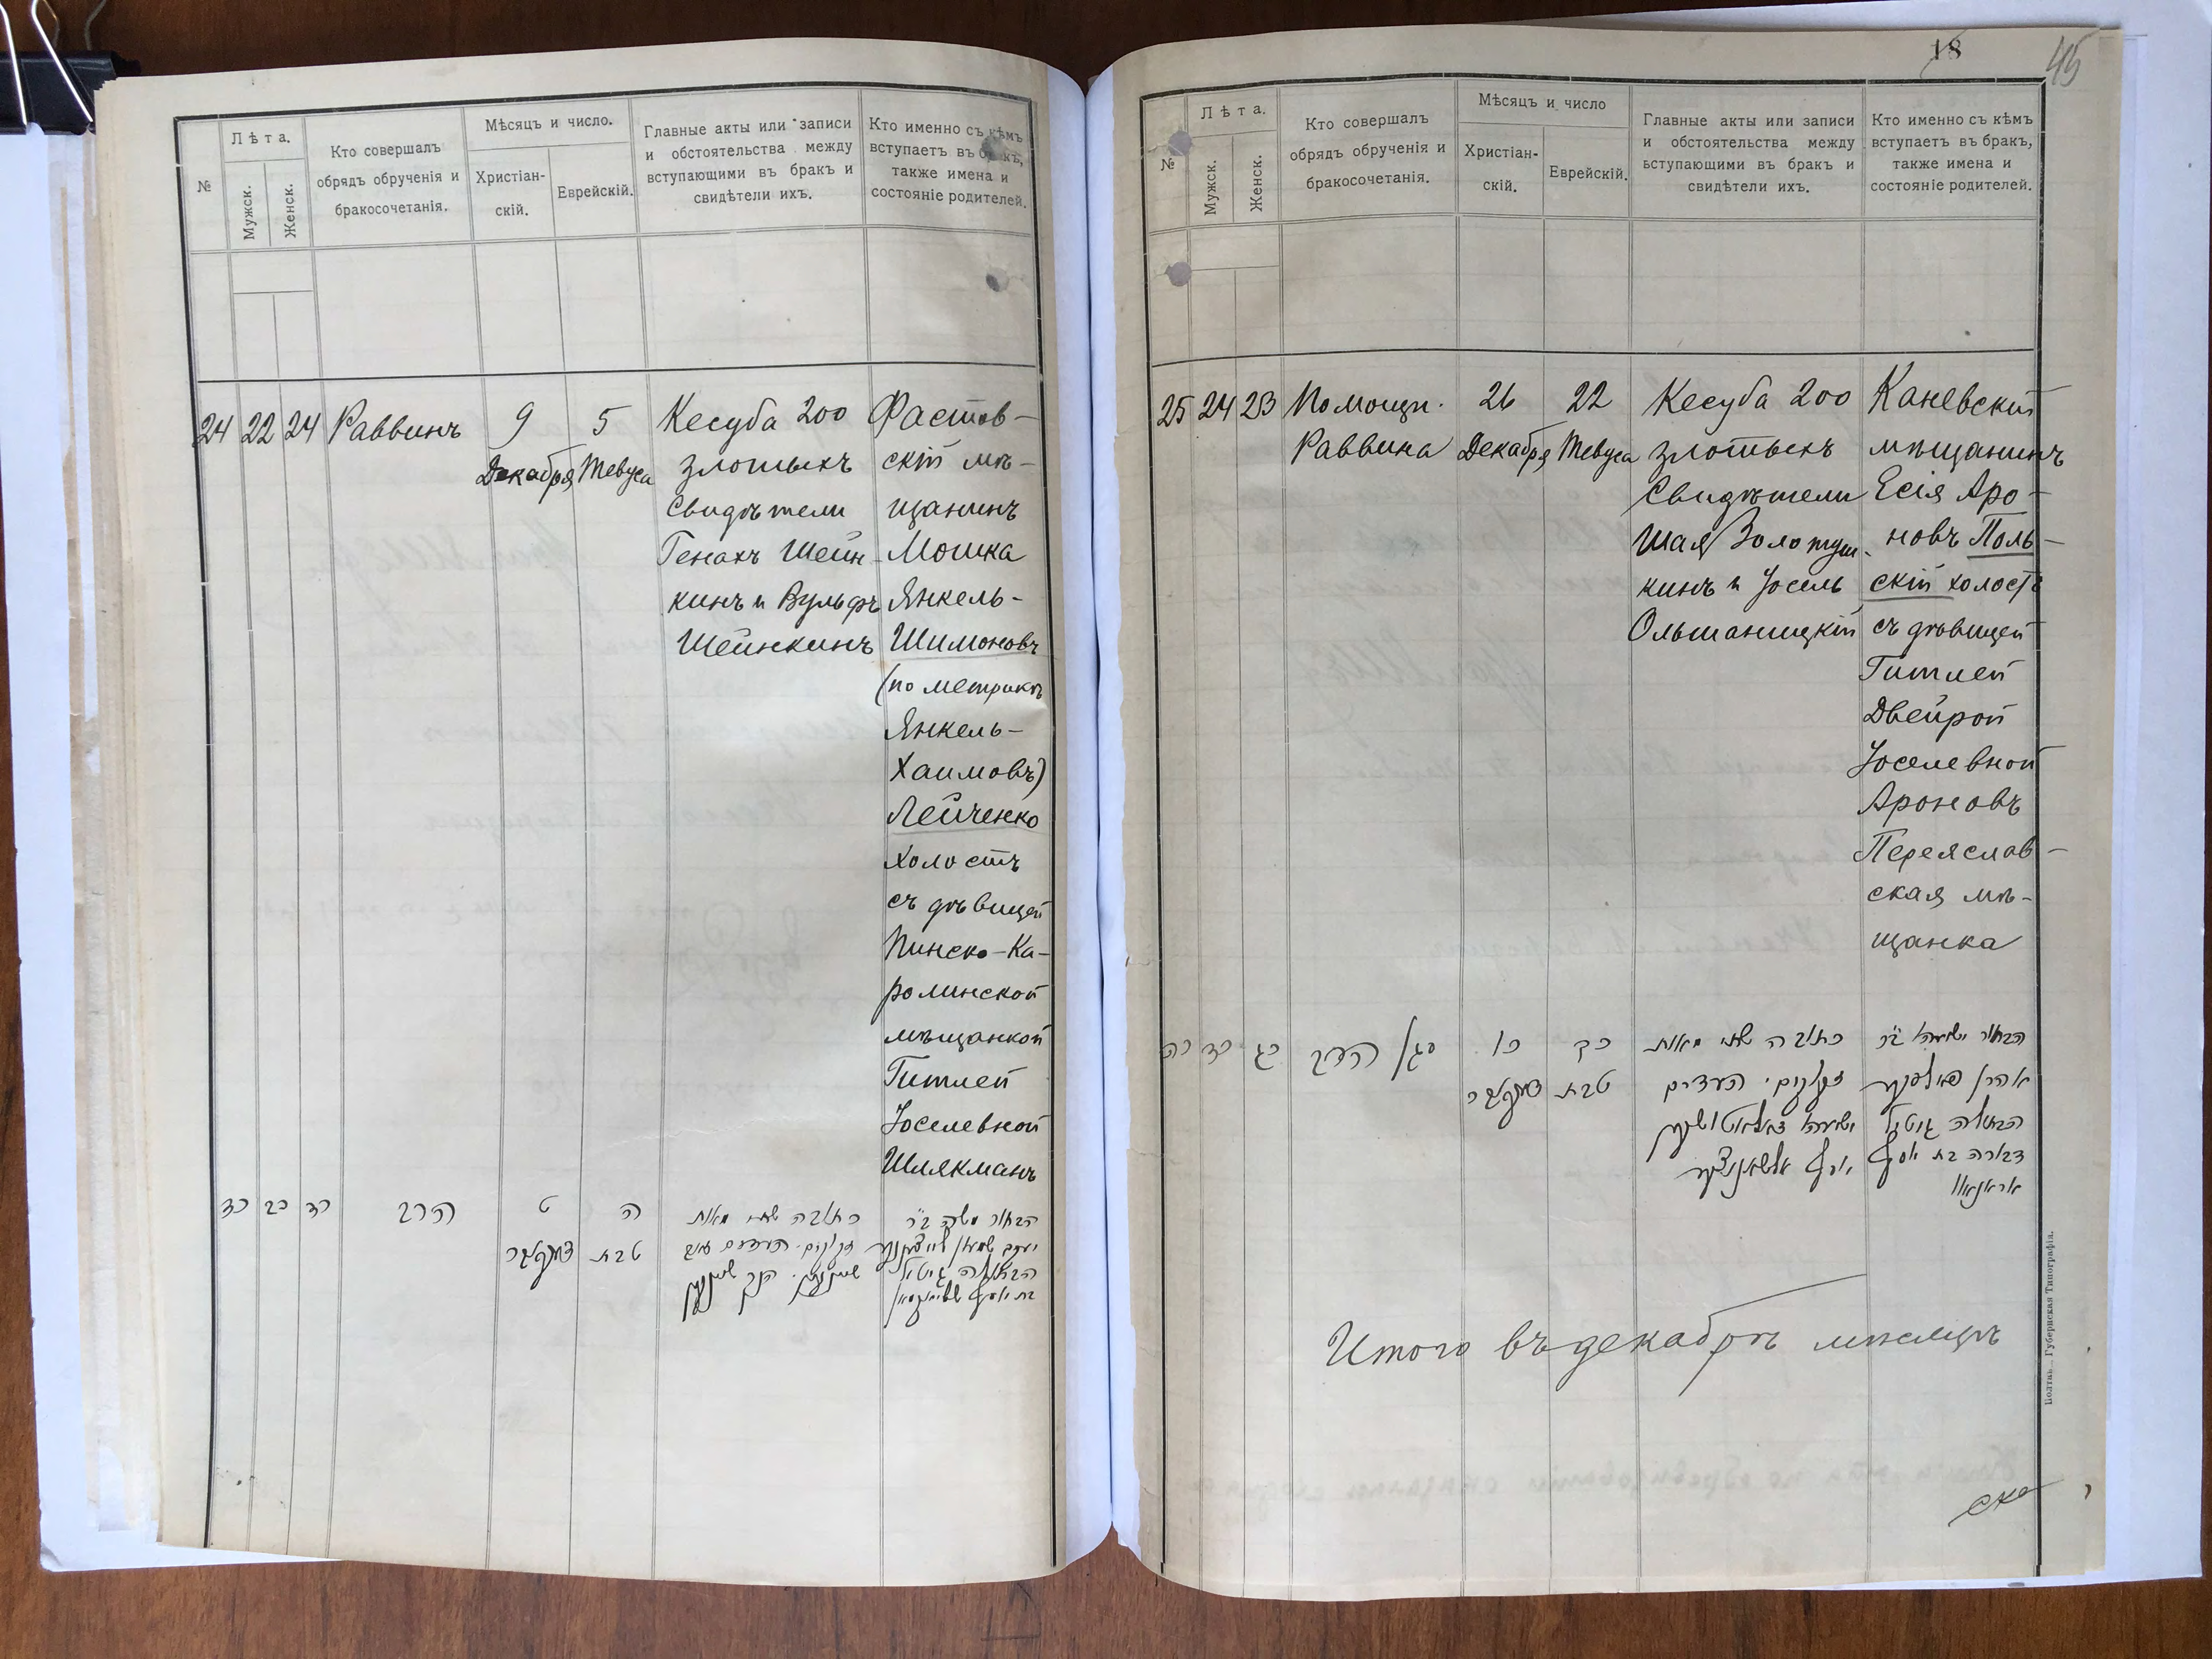 №
Лѣта.
Мужск.
Женск.
Кто совершалъ
обрядъ обрученія и
бракосочетанія.
Мѣсяцъ и число.
Христіан-
скій.
Еврейскій.
Главные акты или записи
и обстоятельства между
вступающими въ бракъ и
свидѣтели ихъ.
Кто именно съ кѣмъ
вступаетъ въ бракъ,
также имена и
состояніе родителей.
24 22 24 Раввинъ
9
Декабря
5
Тевуса
Кесуба 200
злотыхъ
Свидѣтели
Генахъ Шейн-
кинъ и Вульфъ
Шейнкинъ
Фастов-
скій мѣ-
щанинъ
Мошка
Янкель-
Шимоновъ
(по метрикѣ
Янкель-
Хаимовъ)
Лейченко
холостъ
съ дѣвицей
Пинско-Ка-
ролинской
мѣщанкой
Гитлей
Іоселевной
Шлякманъ
כד כב כד
הרב
ט
דעקאבר
ה
טבת
כתובה שתי מאות
זקוקים. העדים
הבחור משה ב״ר
יעקב שמעון
הבתולה גיטל
בת יוסף
18
45
№
Лѣта.
Мужск.
Женск.
Кто совершалъ
обрядъ обрученія и
бракосочетанія.
Мѣсяцъ и число
Христіан-
скій.
Еврейскій.
Главные акты или записи
и обстоятельства между
вступающими въ бракъ и
свидѣтели ихъ.
Кто именно съ кѣмъ
вступаетъ въ бракъ,
также имена и
состояніе родителей.
25 24 23 Помощн.
Раввина
26
Декабря
22
Тевуса
Кесуба 200
злотыхъ
Свидѣтели
Шая Золотуш-
кинъ и Іосель
Ольшаницкій
Каневскій
мѣщанинъ
Есія Аро-
новъ Поль-
скій холостъ
съ дѣвицей
Гитлей
Двейрой
Іоселевной
Ароновъ
Переяслав-
ская мѣ-
щанка
כה כד כג
סגן הרב
כו
דעקאבר
כב
טבת
כתובה שתי מאות
זקוקים. העדים
הבחור ישעיה ב״ר
אהרן
הבתולה גיטל
דבורה בת יוסף
Итого въ декабрѣ мѣсяцѣ
ска
Полтв.—Губернская Типографія.